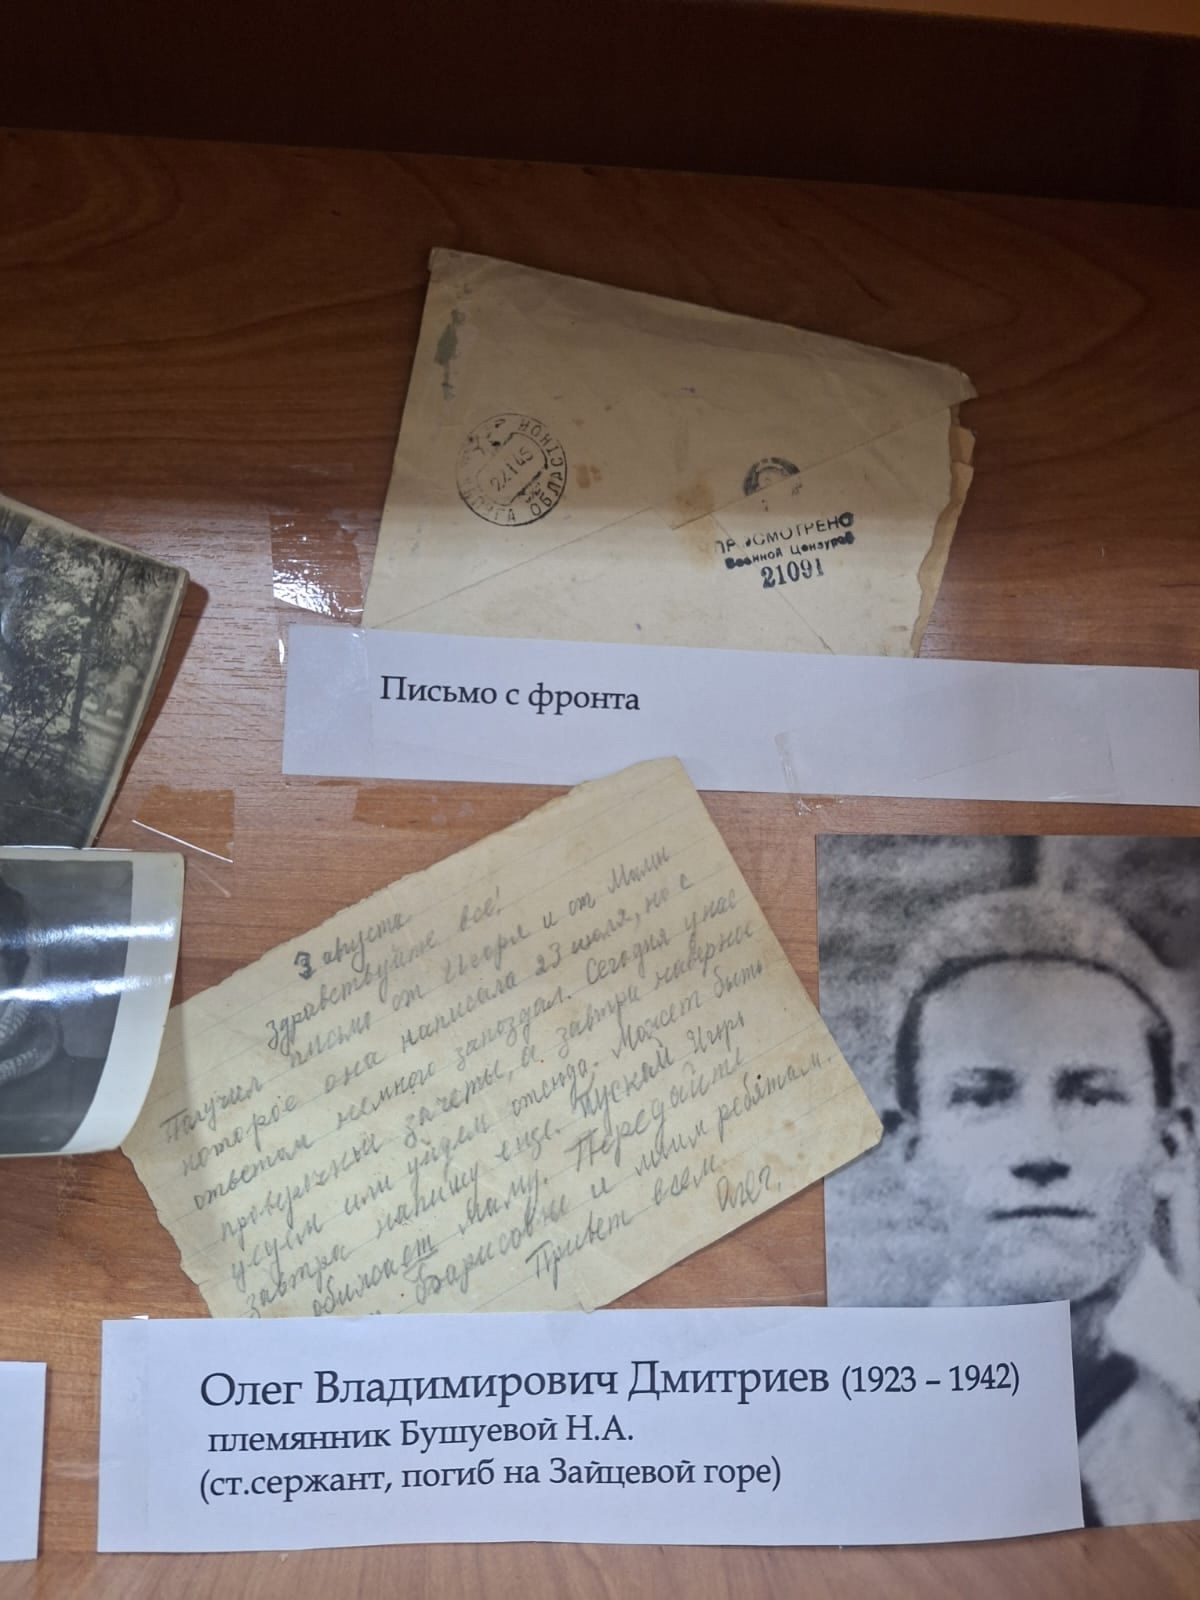 КАЛУГА ОБЛАСТНОЙ
22.1.45
ПРОСМОТРЕНО
Военной Цензурой
21091
Письмо с фронта
3 августа
Здравствуйте все!
Получил письмо от Игоря и от Мили
которое она написала 23 июля, но с
ответом немного запоздал. Сегодня у нас
зачеты, а завтра наверное
уедем или уйдем отсюда. Может быть
завтра напишу еще. Пускай Игорь
маму. Передайте
Борисовне и моим ребятам.
Привет всем
Олег.
Олег Владимирович Дмитриев (1923 – 1942)
племянник Бушуевой Н.А.
(ст.сержант, погиб на Зайцевой горе)